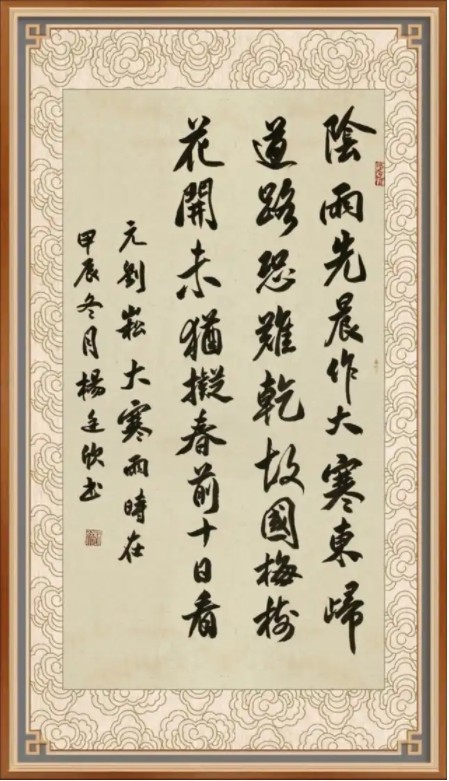 陰雨先晨作大寒東歸
道路恐難乾故國梅樹
花開未猶擬春前十日看
元劉崧大寒雨時在
甲辰冬月楊廷欣书